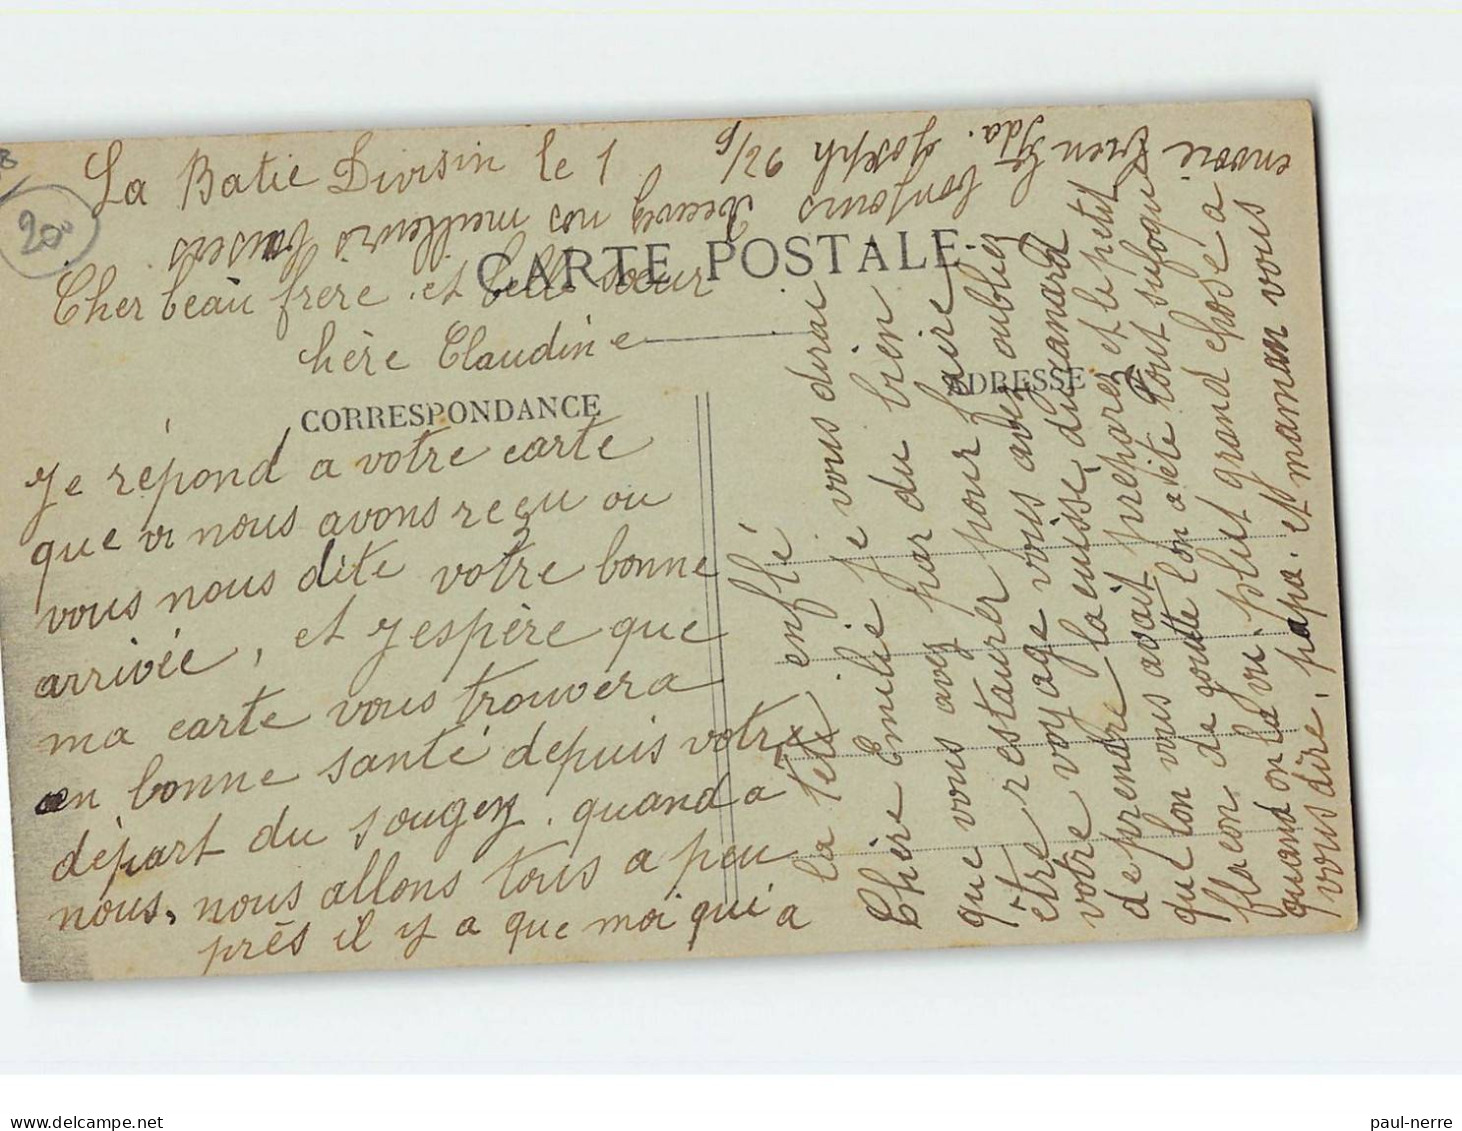 La Batie Divisin le 1 9/26
Cher beau frère et belle soeur
hère Claudine
CARTE POSTALE
CORRESPONDANCE
ADRESSE
Je répond a votre carte
que vi nous avons reçu ou
vous nous dite votre bonne
arrivée, et j'espère que
ma carte vous trouvera
en bonne santé depuis votre
départ du sougey. quand a
nous, nous allons tous a peu
près il y a que moi qui a
la tête enflé
Chère Emilie je vous dirai
que vous avez par du bien
être restaurer pour faire
votre voyage vous avez oubliez
de prendre la cuisse du canard
que lon vous avait préparez et le petit
flacon de goutte lon a été tout sufoqué
quand on la vu. plus grand chose a
vous dire. papa. et maman vous
envoie bien
bonjours Recevez nos meilleurs baisers
Joseph Ida.
20°
paul-nerre